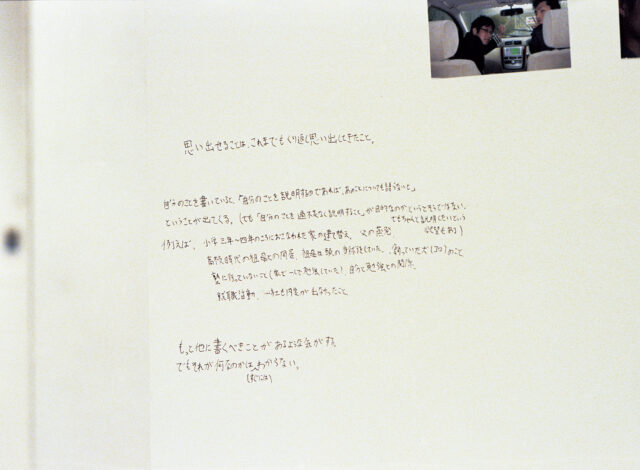 思い出せることは、これまでもくり返し思い出してきたこと。
自分のことを書いていると、「自分のことを説明するのであれば、あのことについても語らないと」
ということが出てくる。しかも「自分のことを過不足なく説明すること」が目的なのかというとそうではない。
でもちゃんと説明したいという
(例えば、小学三年〜四年のころにおこなわれた家の建て替え、父の蒸発、
欲望もある)
高校時代の祖母との同居、祖母は
飼っていた犬(コロ)のこと
塾に行っていないこと(家で一人で勉強していた)、自分と勉強との関係、
就職活動、一社も内定が出なかったこと
もっと他に書くべきことがあるような気がする。
でもそれが何なのかはわからない。
(すぐには)